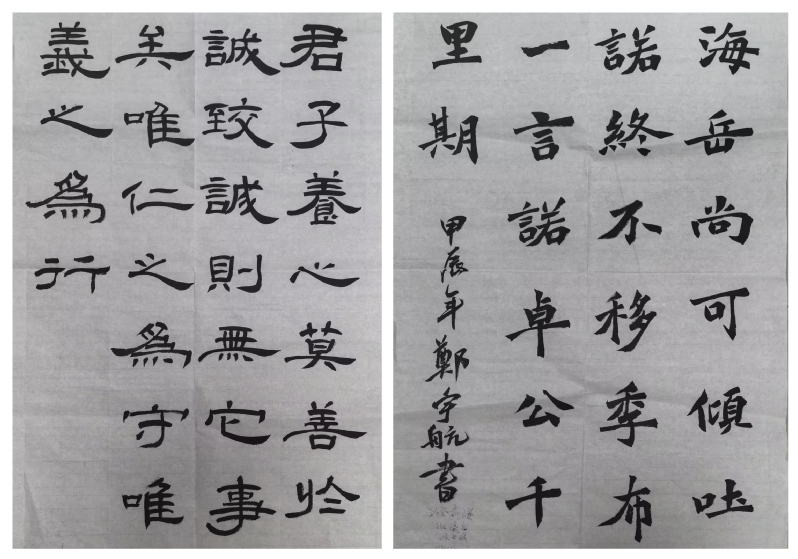 海岳尚可傾吐
諾終不移季布
一言諾卓公千
里期
甲辰年鄭宇航書
君子養心莫善於
誠致誠則無它事
矣唯仁之爲守唯
義之爲行